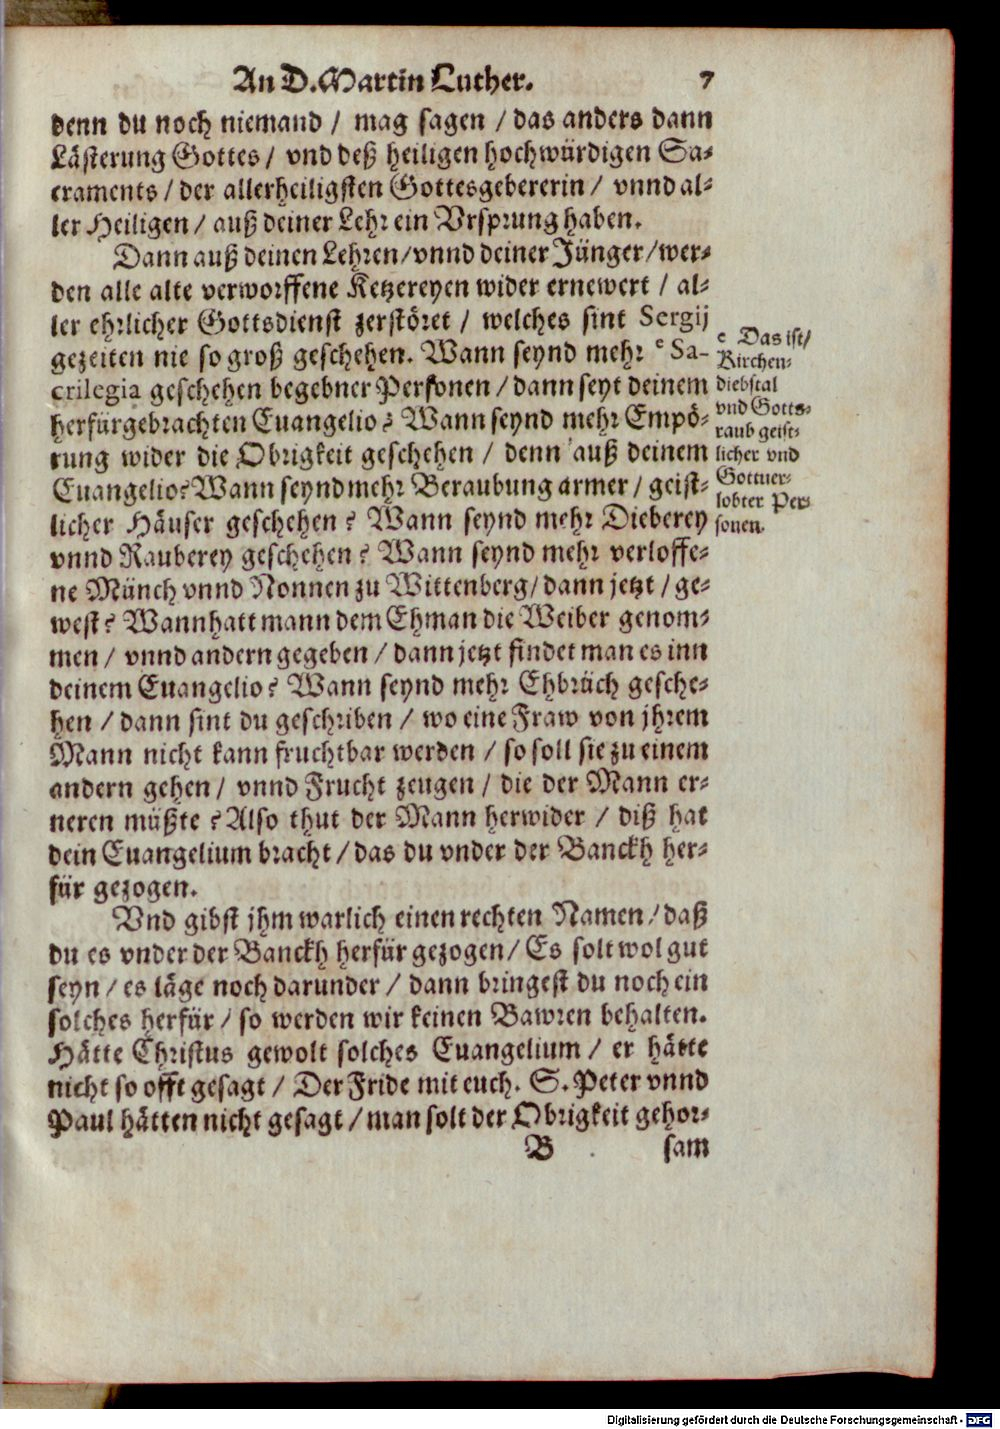 An D. Martin Luther. 7
denn du noch niemand / mag sagen / das anders dann
Lästerung Gottes / vnd deß heiligen hochwürdigen Sa-
craments / der allerheiligsten Gottesgebererin / vnnd al-
ler Heiligen / auß deiner Lehr ein Vrsprung haben.
Dann auß deinen Lehren / vnnd deiner Jünger / wer-
den alle alte verworffene Ketzereyen wider ernewert / al-
ler ehrlicher Gottsdienst zerstöret / welches sint Sergij
gezeiten nie so groß geschehen. Wann seynd mehr e Sa-
crilegia geschehen begebner Personen / dann seyt deinem
herfürgebrachten Euangelio? Wann seynd mehr Empö-
rung wider die Obrigkeit geschehen / denn auß deinem
Euangelio? Wann seynd mehr Beraubung armer / geist-
licher Häuser geschehen? Wann seynd mehr Dieberey
vnnd Rauberey geschehen? Wann seynd mehr verloffe-
ne Münch vnnd Nonnen zu Wittenberg / dann jetzt / ge-
west? Wann hatt mann dem Ehman die Weiber genom-
men / vnnd andern gegeben / dann jetzt findet man es inn
deinem Euangelio? Wann seynd mehr Ehbrüch gesche-
hen / dann sint du geschriben / wo eine Fraw von jhrem
Mann nicht kann fruchtbar werden / so soll sie zu einem
andern gehen / vnnd Frucht zeugen / die der Mann er-
neren müßte? Also thut der Mann herwider / diß hat
dein Euangelium bracht / das du vnder der Banckh her-
für gezogen.
Vnd gibst jhm warlich einen rechten Namen / daß
du es vnder der Banckh herfür gezogen / Es solt wol gut
seyn / es läge noch darunder / dann bringest du noch ein
solches herfür / so werden wir keinen Bawren behalten.
Hätte Christus gewolt solches Euangelium / er hätte
nicht so offt gesagt / Der Fride mit euch. S. Peter vnnd
Paul hätten nicht gesagt / man solt der Obrigkeit gehor-
B sam
e Das ist /
Kirchen-
diebstal
vnd Gotts-
raub geist-
licher vnd
Gottuer-
lobter Per-
sonen.
Digitalisierung gefördert durch die Deutsche Forschungsgemeinschaft - DFG